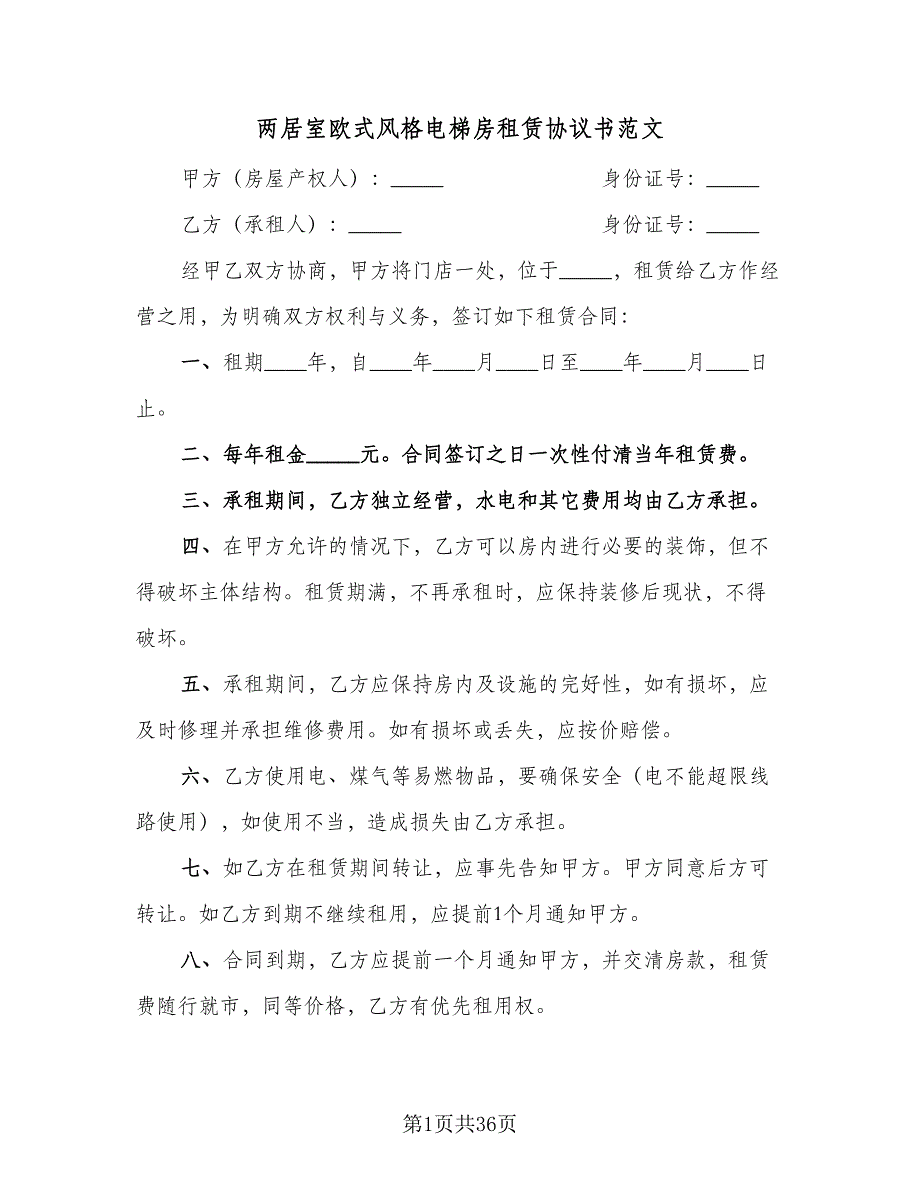 两居室欧式风格电梯房租赁协议书范文
甲方（房屋产权人）：_____ 身份证号：_____
乙方（承租人）：_____ 身份证号：_____
经甲乙双方协商，甲方将门店一处，位于_____，租赁给乙方作经
营之用，为明确双方权利与义务，签订如下租赁合同：
一、租期____年，自____年____月____日至____年____月____日
止。
二、每年租金_____元。合同签订之日一次性付清当年租赁费。
三、承租期间，乙方独立经营，水电和其它费用均由乙方承担。
四、在甲方允许的情况下，乙方可以房内进行必要的装饰，但不
得破坏主体结构。租赁期满，不再承租时，应保持装修后现状，不得
破坏。
五、承租期间，乙方应保持房内及设施的完好性，如有损坏，应
及时修理并承担维修费用。如有损坏或丢失，应按价赔偿。
六、乙方使用电、煤气等易燃物品，要确保安全（电不能超限线
路使用），如使用不当，造成损失由乙方承担。
七、如乙方在租赁期间转让，应事先告知甲方。甲方同意后方可
转让。如乙方到期不继续租用，应提前1个月通知甲方。
八、合同到期，乙方应提前一个月通知甲方，并交清房款，租赁
费随行就市，同等价格，乙方有优先租用权。
第1页共36页